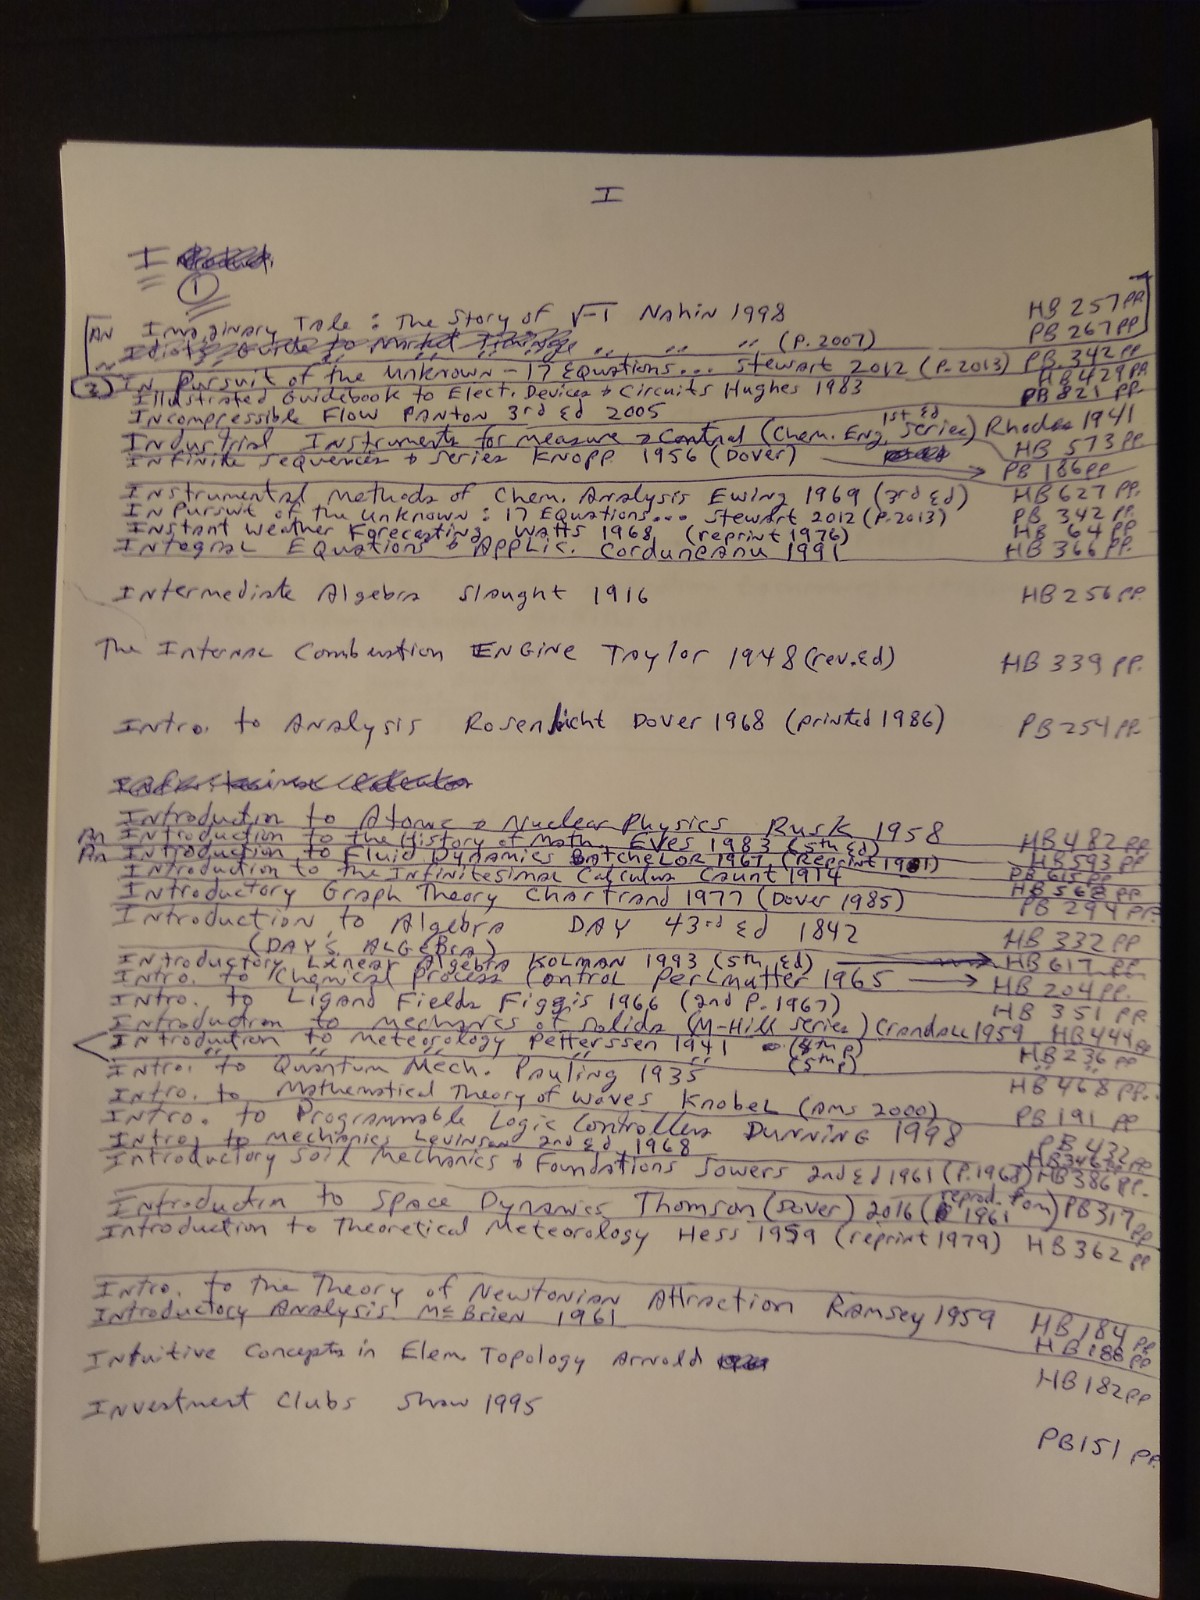 I
I
1
An Imaginary Tale : The Story of √-1 Nahin 1998 HB 257 pp.
" " " (P. 2007) PB 267 pp
(2) In Pursuit of the Unknown - 17 Equations... Stewart 2012 (P. 2013) PB. 342 pp
Illustrated Guidebook to Elect. Devices + Circuits Hughes 1983 HB 429 pp
Incompressible Flow Panton 3rd Ed 2005 PB 821 pp.
Industrial Instruments for measure + Control (Chem. Eng. Series) 1st Ed Rhodes 1941 HB 573 pp
Infinite sequences + series Knopp 1956 (Dover) → PB 186 pp
Instrumental Methods of Chem. Analysis Ewing 1969 (3rd Ed) HB 627 pp.
In Pursuit of the Unknown : 17 Equations... Stewart 2012 (P. 2013) PB 342 pp.
Instant Weather Forecasting Watts 1968 (reprint 1976) HB 64 pp
Integral Equations + Applic. Corduneanu 1991 HB 366 pp.
Intermediate Algebra Slaught 1916 HB 256 pp.
The Internal Combustion Engine Taylor 1948 (rev. Ed) HB 339 pp.
Intro. to Analysis Rosenlicht Dover 1968 (printed 1986) PB 254 pp.
Introduction to Atomic + Nuclear Physics Rusk 1958 HB 482 pp
An Introduction to the History of Math. Eves 1983 (5th Ed) HB 593 pp
An Introduction to Fluid Dynamics Batchelor 1967 (Reprint 1981) PB 615 pp
Introduction to the Infinitesimal Calculus Caunt 1914 HB 568 pp
Introductory Graph Theory Chartrand 1977 (Dover 1985) PB 294 pp.
Introduction to Algebra DAY 43rd Ed 1842 HB 332 pp
(DAY'S ALGEBRA)
Introductory Linear Algebra KOLMAN 1993 (5th Ed) → HB 617 pp
Intro. to Chemical Process Control Perlmutter 1965 → HB 204 pp.
Intro. to Ligand Fields Figgis 1966 (2nd P. 1967) HB 351 pp
Introduction to mechanics of solids (M-Hill series) Crandall 1959 HB 444 pp
Introduction to Meteorology Petterssen 1941 (4th P) HB 236 pp
" " " " (5th P) " "
Intro. to Quantum Mech. Pauling 1935 HB 468 pp.
Intro. to Mathematical Theory of Waves Knobel (AMS 2000) PB 191 pp
Intro. to Programmable Logic Controllers DUNNING 1998 PB 432 pp
Intro. to Mechanics Levinson 2nd Ed 1968 HB 346 pp
Introductory Soil Mechanics + Foundations Sowers 2nd Ed 1961 (P. 1968) HB 386 pp.
Introduction to Space Dynamics Thomson (Dover) 2016 (reprod. from 1961) PB 317 pp
Introduction to Theoretical Meteorology Hess 1959 (reprint 1979) HB 362 pp
Intro. to the Theory of Newtonian Attraction Ramsey 1959 HB 184 pp
Introductory Analysis McBrien 1961 HB 188 pp
Intuitive Concepts in Elem. Topology Arnold HB 182 pp
Investment Clubs Shaw 1995 PB 151 pp.